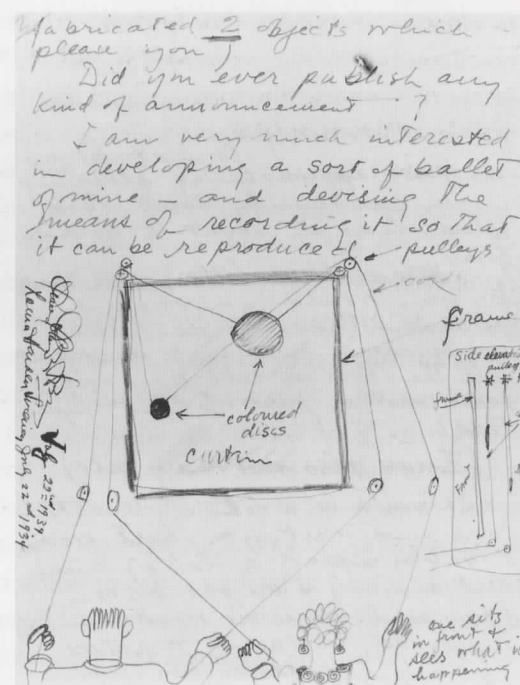 fabricated 2 objects which
please you)
Did you ever publish any
kind of announcement ?
I am very much interested
in developing a sort of ballet
of mine — and devising the
means of recording it so that
it can be reproduced
pulleys
cord
frame
side elevation
frame
coloured
discs
Curtain
Frame
July 22nd 1934
July 22nd 1934
one sits
in front &
sees what is
happening